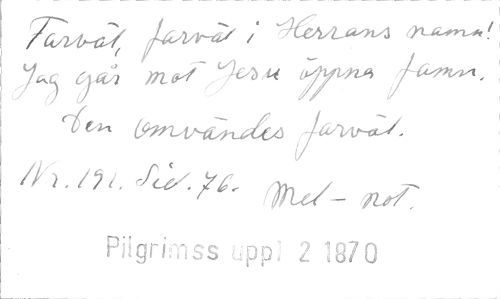 Farväl, farväl i Herrans namn!
Jag går mot Jesu öppna famn.
Den omvändes farväl.
Nr. 191. Sid. 76. Mel-not.
Pilgrimss uppl 2 1870